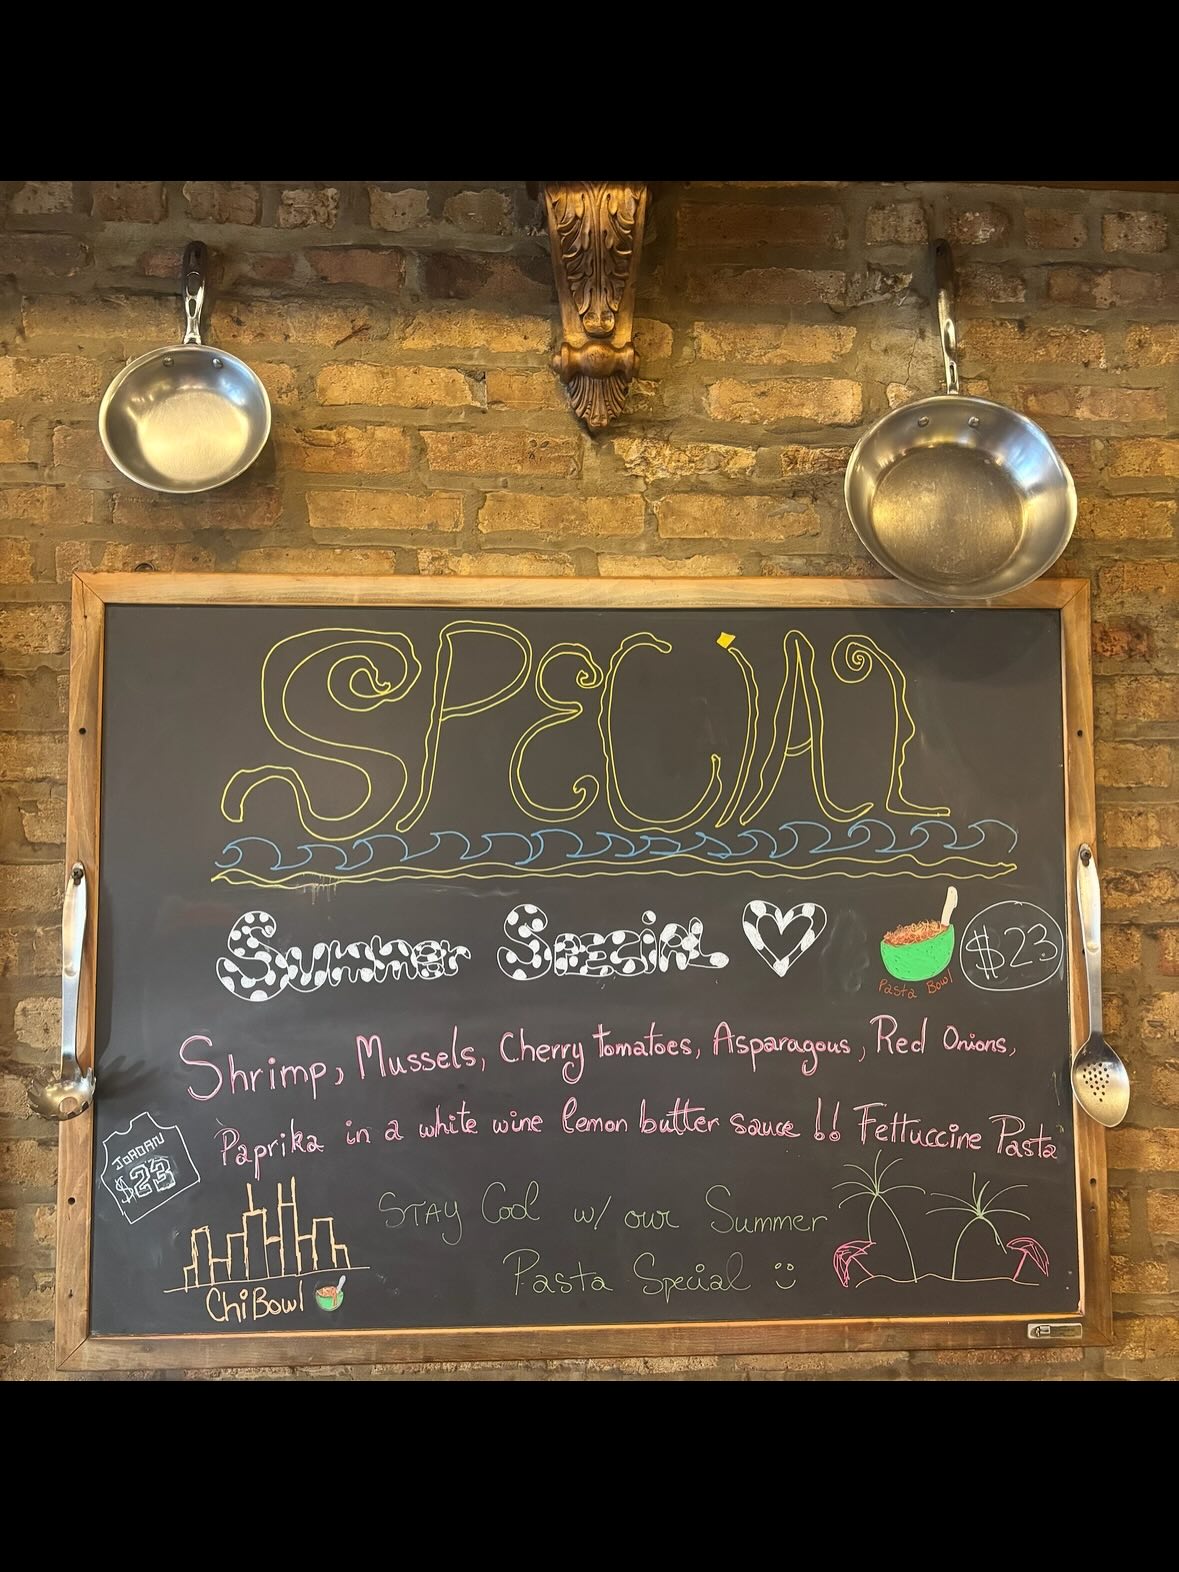 SPECIAL
Summer Special
$23
Pasta Bowl
Shrimp, Mussels, Cherry tomatoes, Asparagous, Red Onions,
Paprika in a white wine lemon butter sauce !! Fettuccine Pasta
JORDAN
$23
STAY Cool w/ our Summer
Pasta Special
ChiBowl